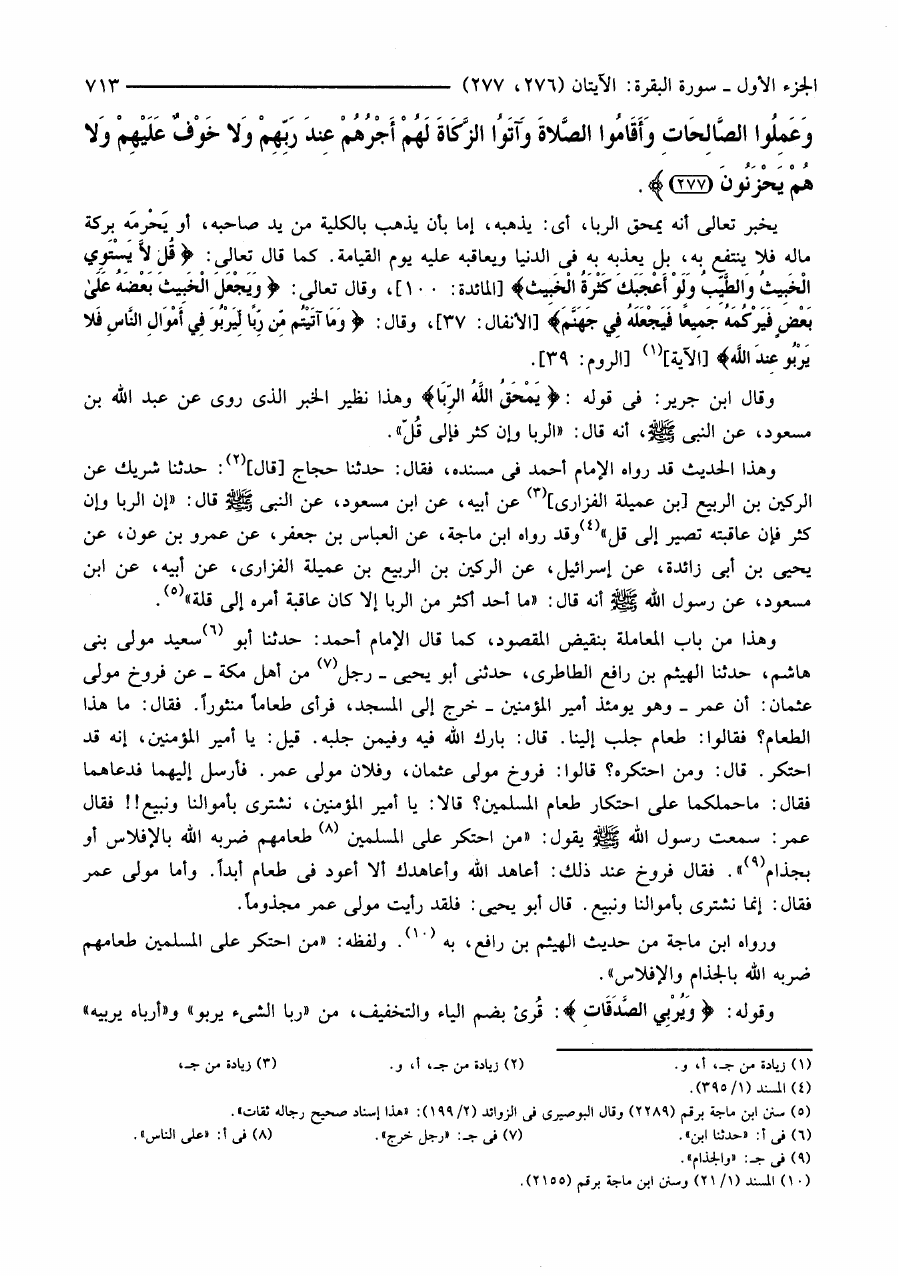 الجزء الأول ـ سورة البقرة: الآيتان (٢٧٦، ٢٧٧) ٧١٣
وَعَمِلُوا الصَّالِحَاتِ وَأَقَامُوا الصَّلاةَ وَآتَوُا الزَّكَاةَ لَهُمْ أَجْرُهُمْ عِندَ رَبِّهِمْ وَلا خَوْفٌ عَلَيْهِمْ وَلا
هُمْ يَحْزَنُونَ (٢٧٧) ﴾ .
يخبر تعالى أنه يمحق الربا، أى: يذهبه، إما بأن يذهب بالكلية من يد صاحبه، أو يَحْرمَه بركة
ماله فلا ينتفع به، بل يعذبه به فى الدنيا ويعاقبه عليه يوم القيامة. كما قال تعالى: ﴿ قُل لاَّ يَسْتَوِي
الْخَبِيثُ وَالطَّيِّبُ وَلَوْ أَعْجَبَكَ كَثْرَةُ الْخَبِيثِ﴾ [المائدة: ١٠٠]، وقال تعالى: ﴿ وَيَجْعَلَ الْخَبِيثَ بَعْضَهُ عَلَىٰ
بَعْضٍ فَيَرْكُمَهُ جَمِيعًا فَيَجْعَلَهُ فِي جَهَنَّمَ﴾ [الأنفال: ٣٧]، وقال: ﴿ وَمَا آتَيْتُم مِّن رِّبًا لِّيَرْبُوَ فِي أَمْوَالِ النَّاسِ فَلا
يَرْبُو عِندَ اللَّهِ﴾ [الآية](١) [الروم: ٣٩].
وقال ابن جرير: فى قوله :﴿ يَمْحَقُ اللَّهُ الرِّبَا﴾ وهذا نظير الخبر الذى روى عن عبد الله بن
مسعود، عن النبى ﷺ، أنه قال: «الربا وإن كثر فإلى قُلّ».
وهذا الحديث قد رواه الإمام أحمد فى مسنده، فقال: حدثنا حجاج [قال](٢): حدثنا شريك عن
الركين بن الربيع [بن عميلة الفزارى](٣) عن أبيه، عن ابن مسعود، عن النبى ﷺ قال: «إن الربا وإن
كثر فإن عاقبته تصير إلى قل»(٤)وقد رواه ابن ماجة، عن العباس بن جعفر، عن عمرو بن عون، عن
يحيى بن أبى زائدة، عن إسرائيل، عن الركين بن الربيع بن عميلة الفزارى، عن أبيه، عن ابن
مسعود، عن رسول الله ﷺ أنه قال: «ما أحد أكثر من الربا إلا كان عاقبة أمره إلى قلة»(٥).
وهذا من باب المعاملة بنقيض المقصود، كما قال الإمام أحمد: حدثنا أبو (٦)سعيد مولى بنى
هاشم، حدثنا الهيثم بن رافع الطاطرى، حدثنى أبو يحيى ـ رجل(٧) من أهل مكة ـ عن فروخ مولى
عثمان: أن عمر ـ وهو يومئذ أمير المؤمنين ـ خرج إلى المسجد، فرأى طعاماً منثوراً. فقال: ما هذا
الطعام؟ فقالوا: طعام جلب إلينا. قال: بارك الله فيه وفيمن جلبه. قيل: يا أمير المؤمنين، إنه قد
احتكر. قال: ومن احتكره؟ قالوا: فروخ مولى عثمان، وفلان مولى عمر. فأرسل إليهما فدعاهما
فقال: ماحملكما على احتكار طعام المسلمين؟ قالا: يا أمير المؤمنين، نشترى بأموالنا ونبيع!! فقال
عمر: سمعت رسول الله ﷺ يقول: «من احتكر على المسلمين (٨) طعامهم ضربه الله بالإفلاس أو
بجذام(٩)». فقال فروخ عند ذلك: أعاهد الله وأعاهدك ألا أعود فى طعام أبداً. وأما مولى عمر
فقال: إنما نشترى بأموالنا ونبيع. قال أبو يحيى: فلقد رأيت مولى عمر مجذوماً.
ورواه ابن ماجة من حديث الهيثم بن رافع، به (١٠). ولفظه: «من احتكر على المسلمين طعامهم
ضربه الله بالجذام والإفلاس».
وقوله: ﴿ وَيُرْبِي الصَّدَقَاتِ ﴾: قُرئ بضم الياء والتخفيف، من «ربا الشىء يربو» و«أرباه يربيه»
(١) زيادة من جـ، أ، و. (٢) زيادة من جـ، أ، و. (٣) زيادة من جـ،
(٤) المسند (١/ ٣٩٥).
(٥) سنن ابن ماجة برقم (٢٢٨٩) وقال البوصيرى فى الزوائد (٢/ ١٩٩): «هذا إسناد صحيح رجاله ثقات».
(٦) فى أ: «حدثنا ابن». (٧) فى جـ: «رجل خرج». (٨) فى أ: «على الناس».
(٩) فى جـ: «والجذام».
(١٠) المسند (١/ ٢١) وسنن ابن ماجة برقم (٢١٥٥).